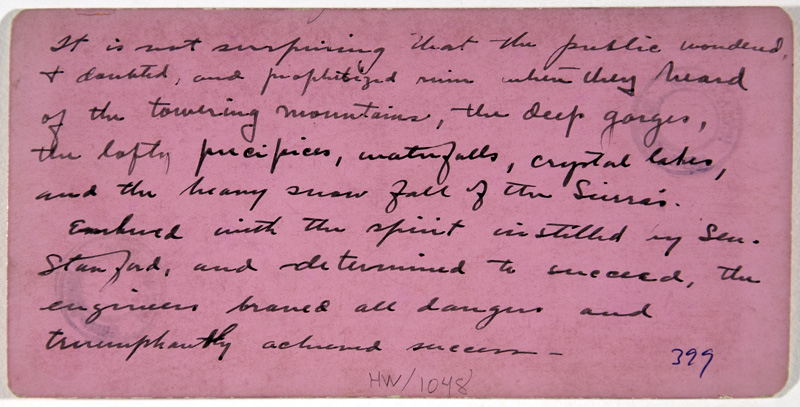 It is not surprising that the public wondered,
& doubted, and prophetized ruin when they heard
of the towering mountains, the deep gorges,
the lofty precipices, waterfalls, crystal lakes,
and the heavy snow fall of the Sierras.
Embued with the spirit instilled by Sen.
Stanford, and determined to succeed, the
engineers braved all dangers and
triumphantly achieved success —
399
HW/1048